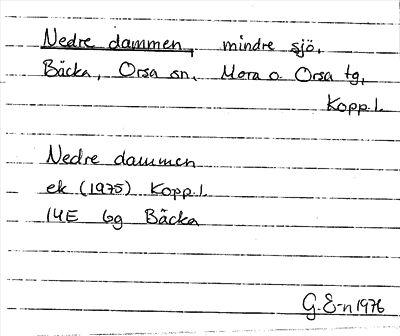 Nedre dammen, mindre sjö,
Bäcka, Orsa sn, Mora o. Orsa tg,
Kopp.l.
Nedre dammen
ek (1975) Kopp.l.
14E 6g Bäcka
G.E-n 1976